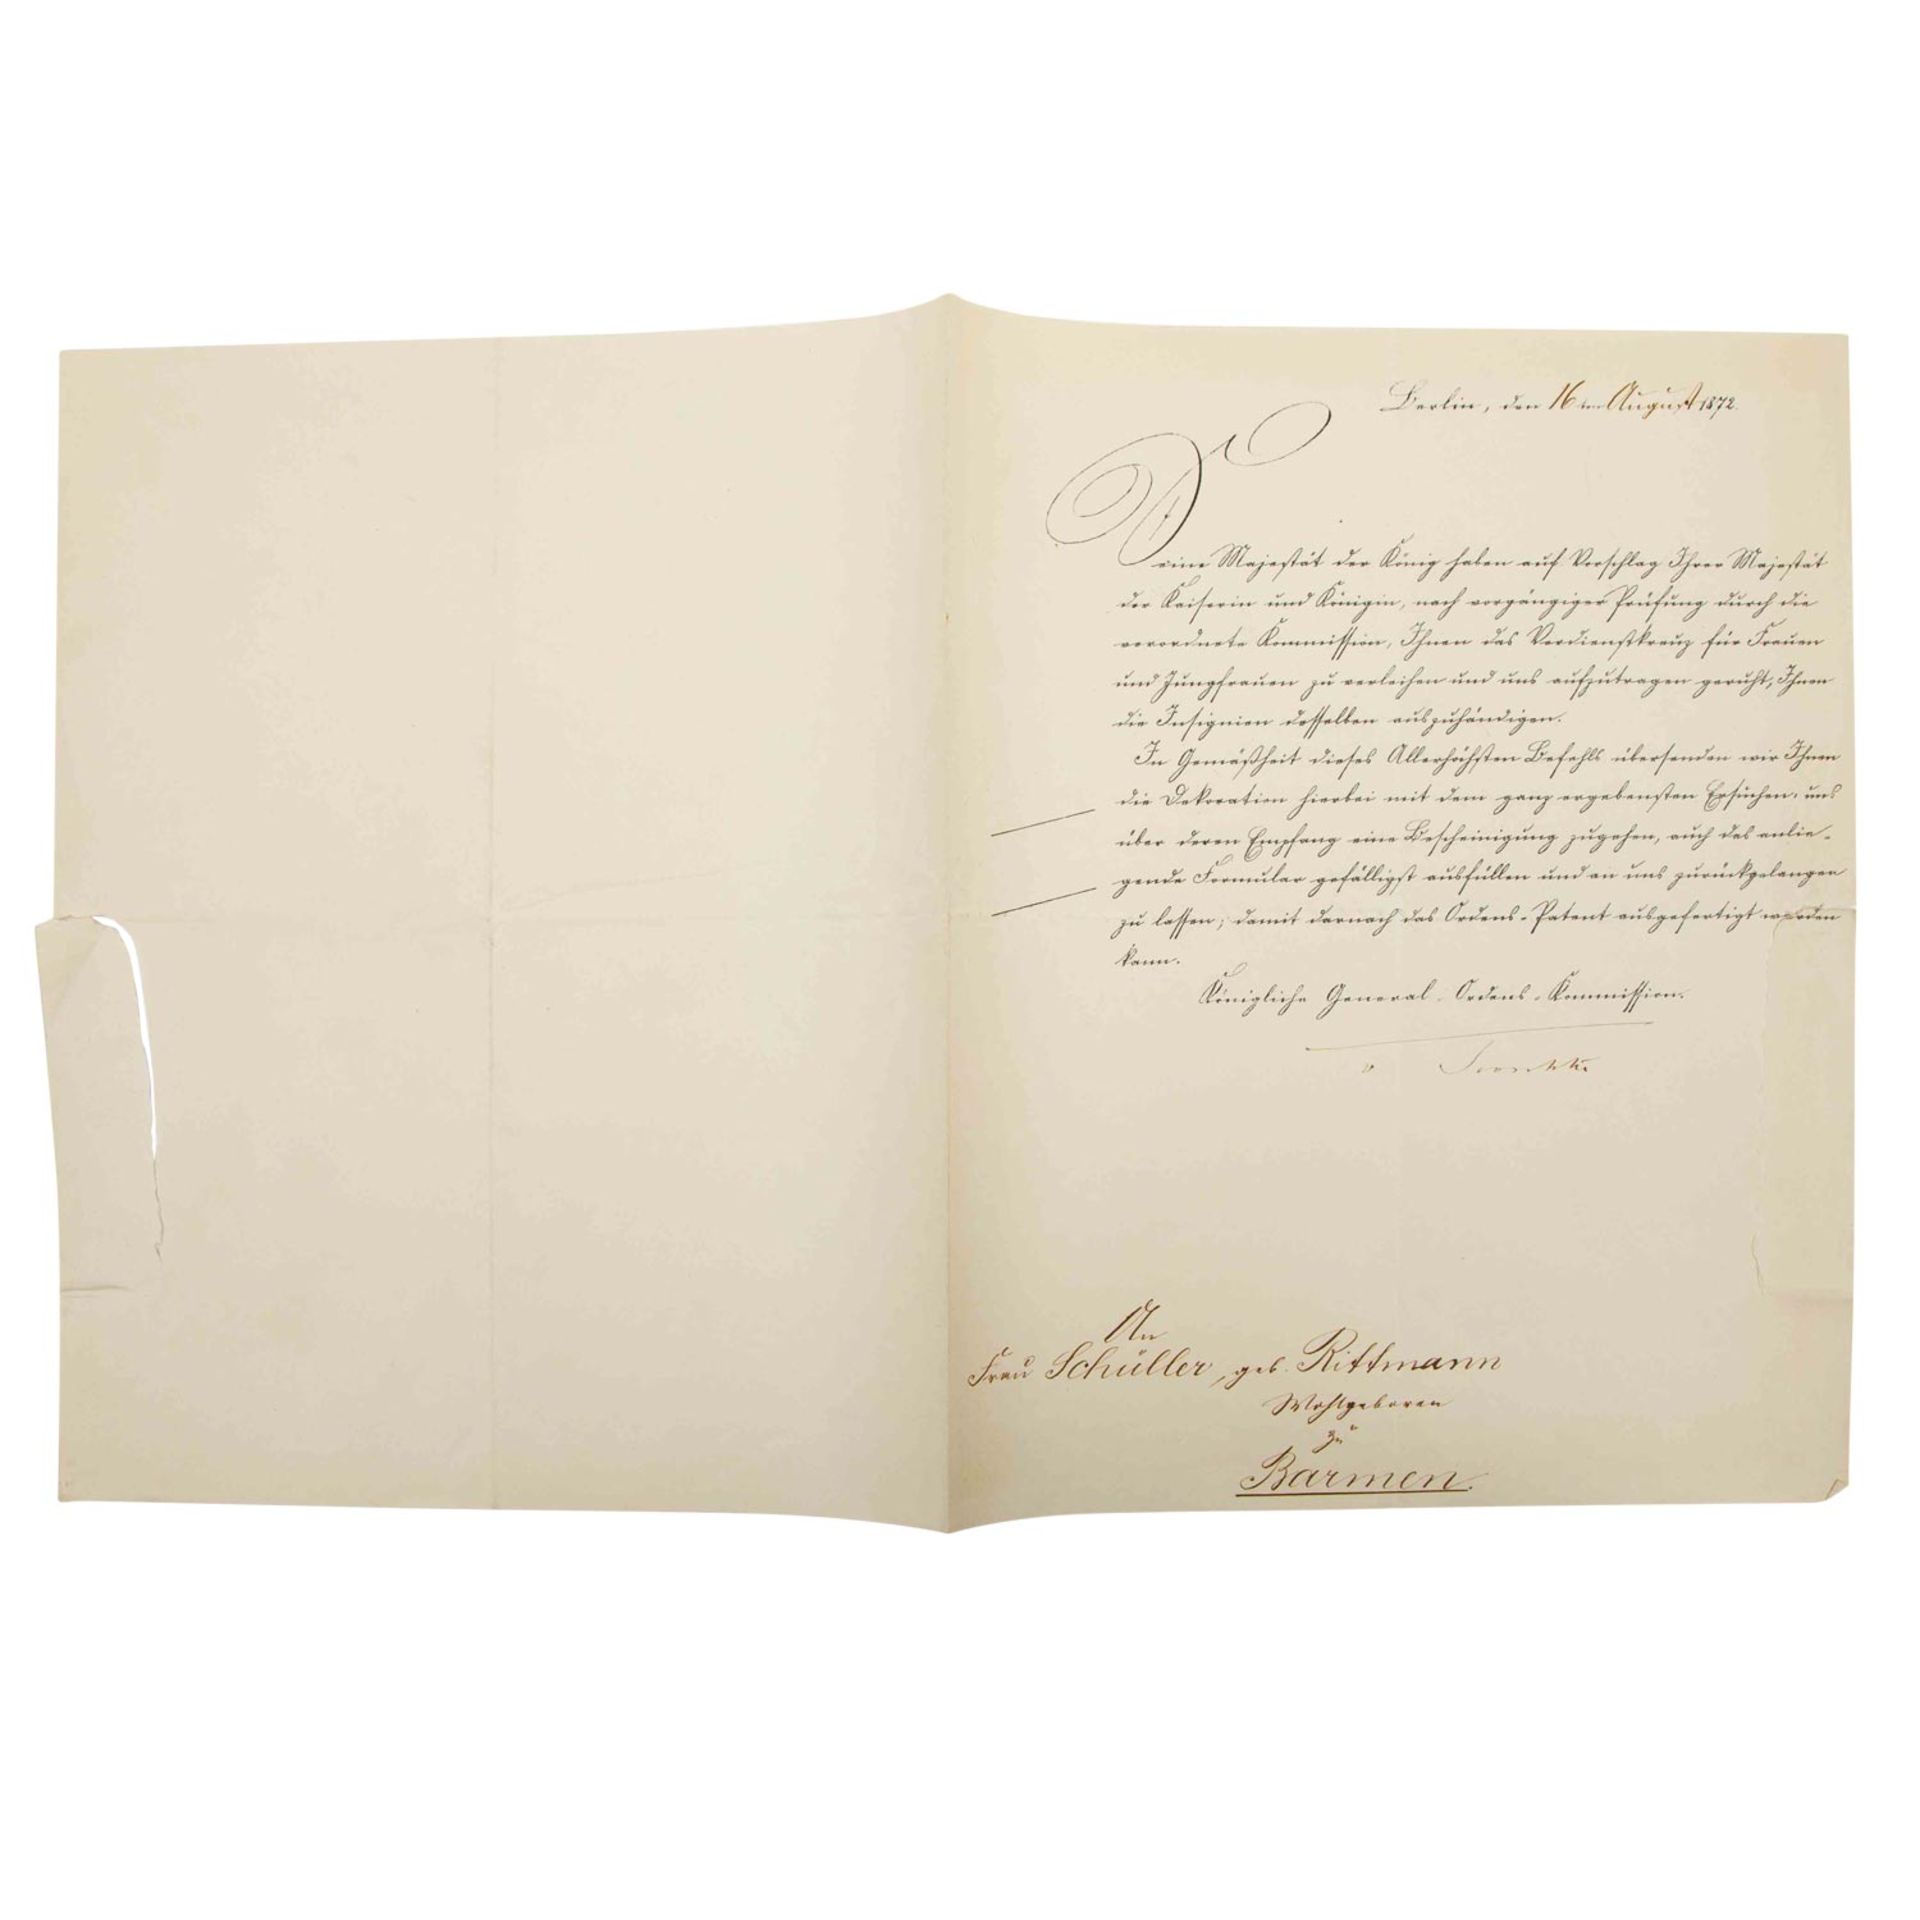 Berlin, den 16ten August 1872.
Seine Majestät der König haben auf Vorschlag Ihrer Majestät
der Kaiserin und Königin, nach vorgängiger Prüfung durch die
verordnete Kommission, Ihnen das Verdienstkreuz für Frauen
und Jungfrauen zu verleihen und uns aufzutragen geruht, Ihnen
die Insignien desselben auszuhändigen.
In Gemäßheit dieses Allerhöchsten Befehls übersenden wir Ihnen
die Dekoration hierbei mit dem ganz ergebensten Ersuchen, uns
über deren Empfang eine Bescheinigung zugehen, auch das anlie-
gende Formular gefälligst ausfüllen und an uns zurückgelangen
zu lassen, damit darnach das Ordens-Patent ausgefertigt werden
kann.
Königliche General-Ordens-Kommission.
An
Frau Schüller, geb. Rittmann
Wohlgeboren
zu
Barmen.